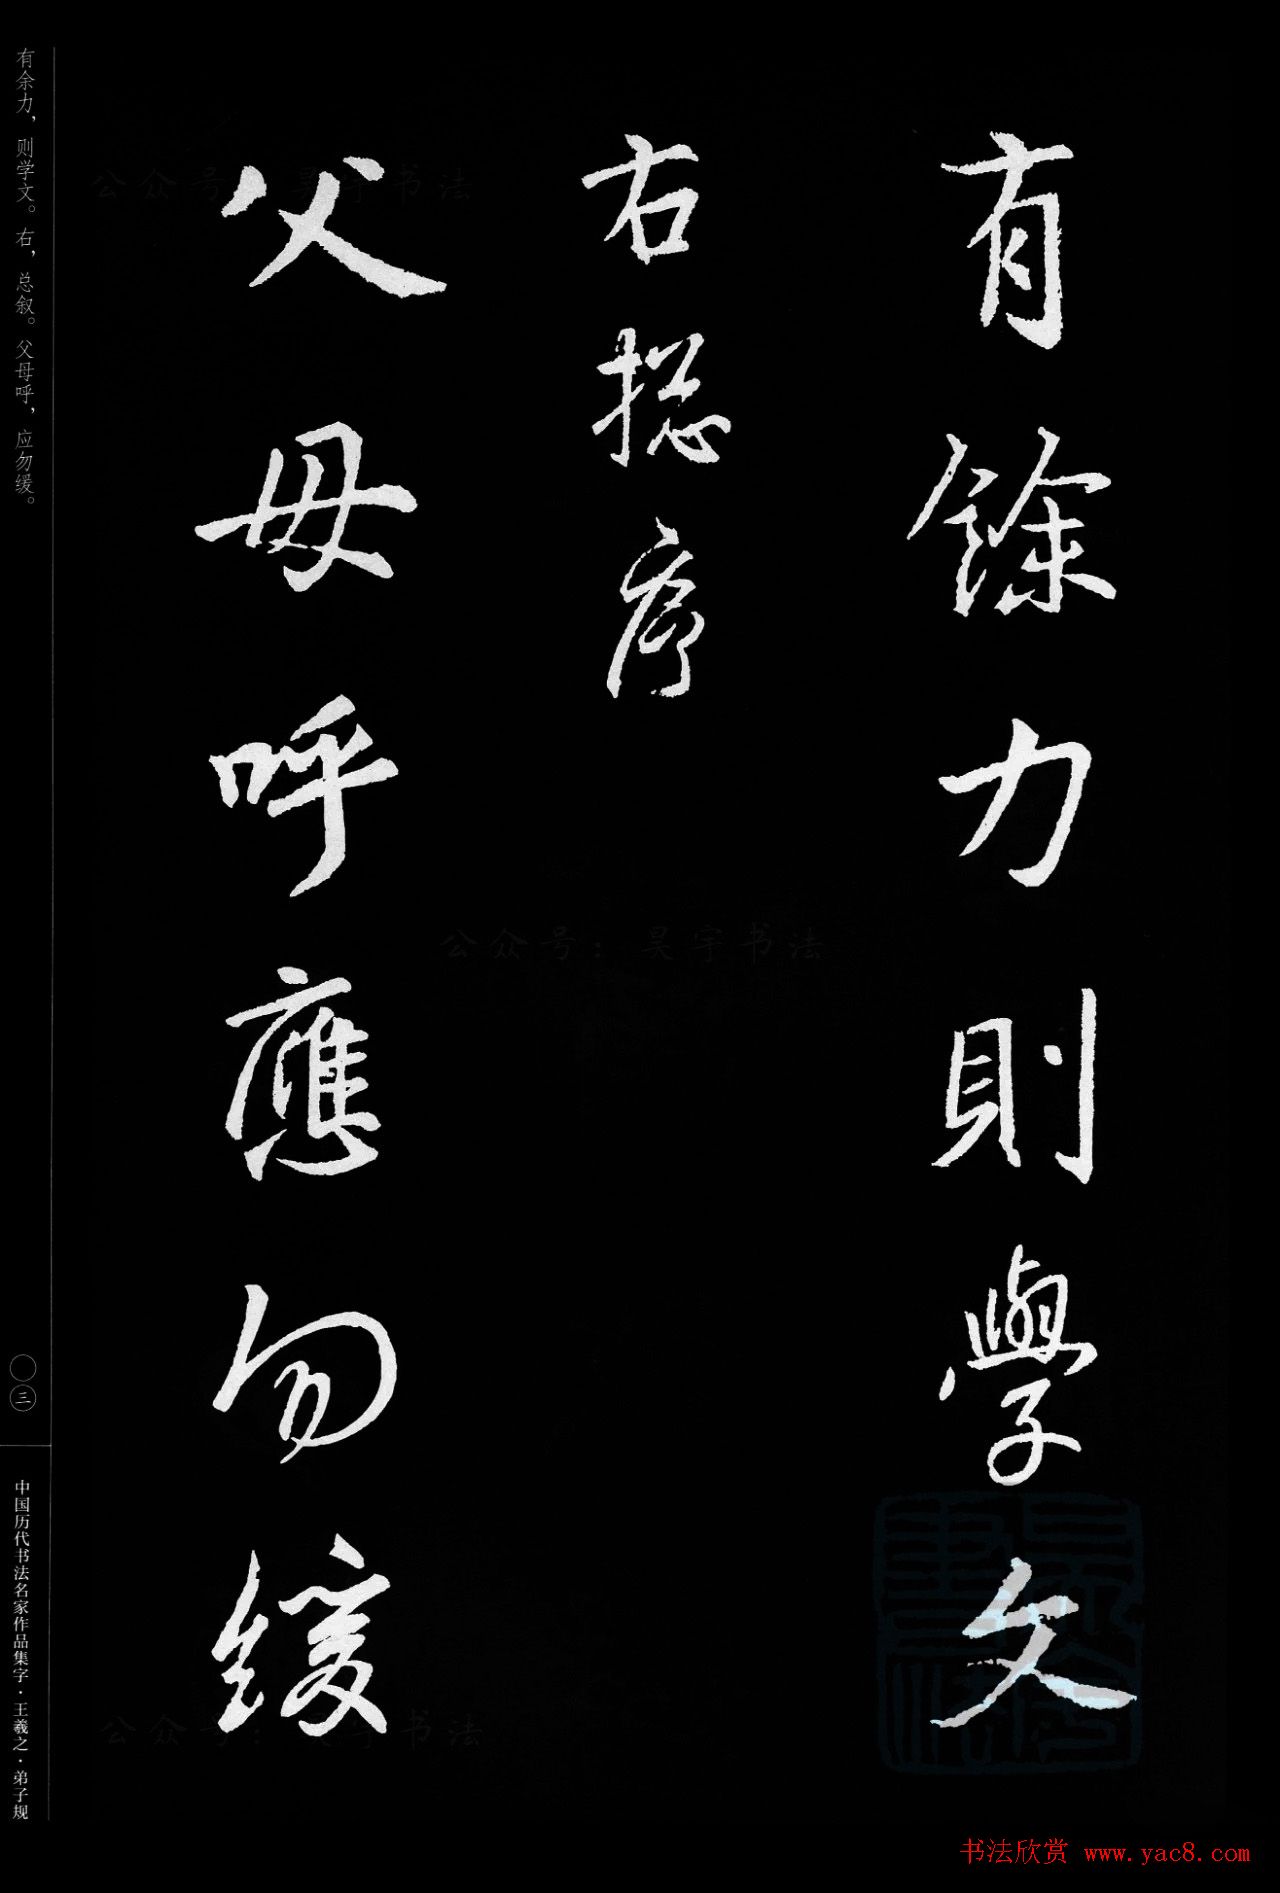 有餘力則學文
右揔序
父母呼應勿緩
有余力，则学文。右，总叙。父母呼，应勿缓。
〇三
中国历代书法名家作品集字·王羲之·弟子规
公众号：昊宇书法
公众号：昊宇书法
公众号：昊宇书法
书法欣赏 www.yac8.com